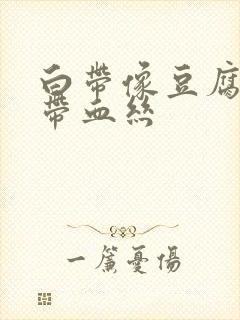 白帶像豆腐
帶血絲
一簾憂傷